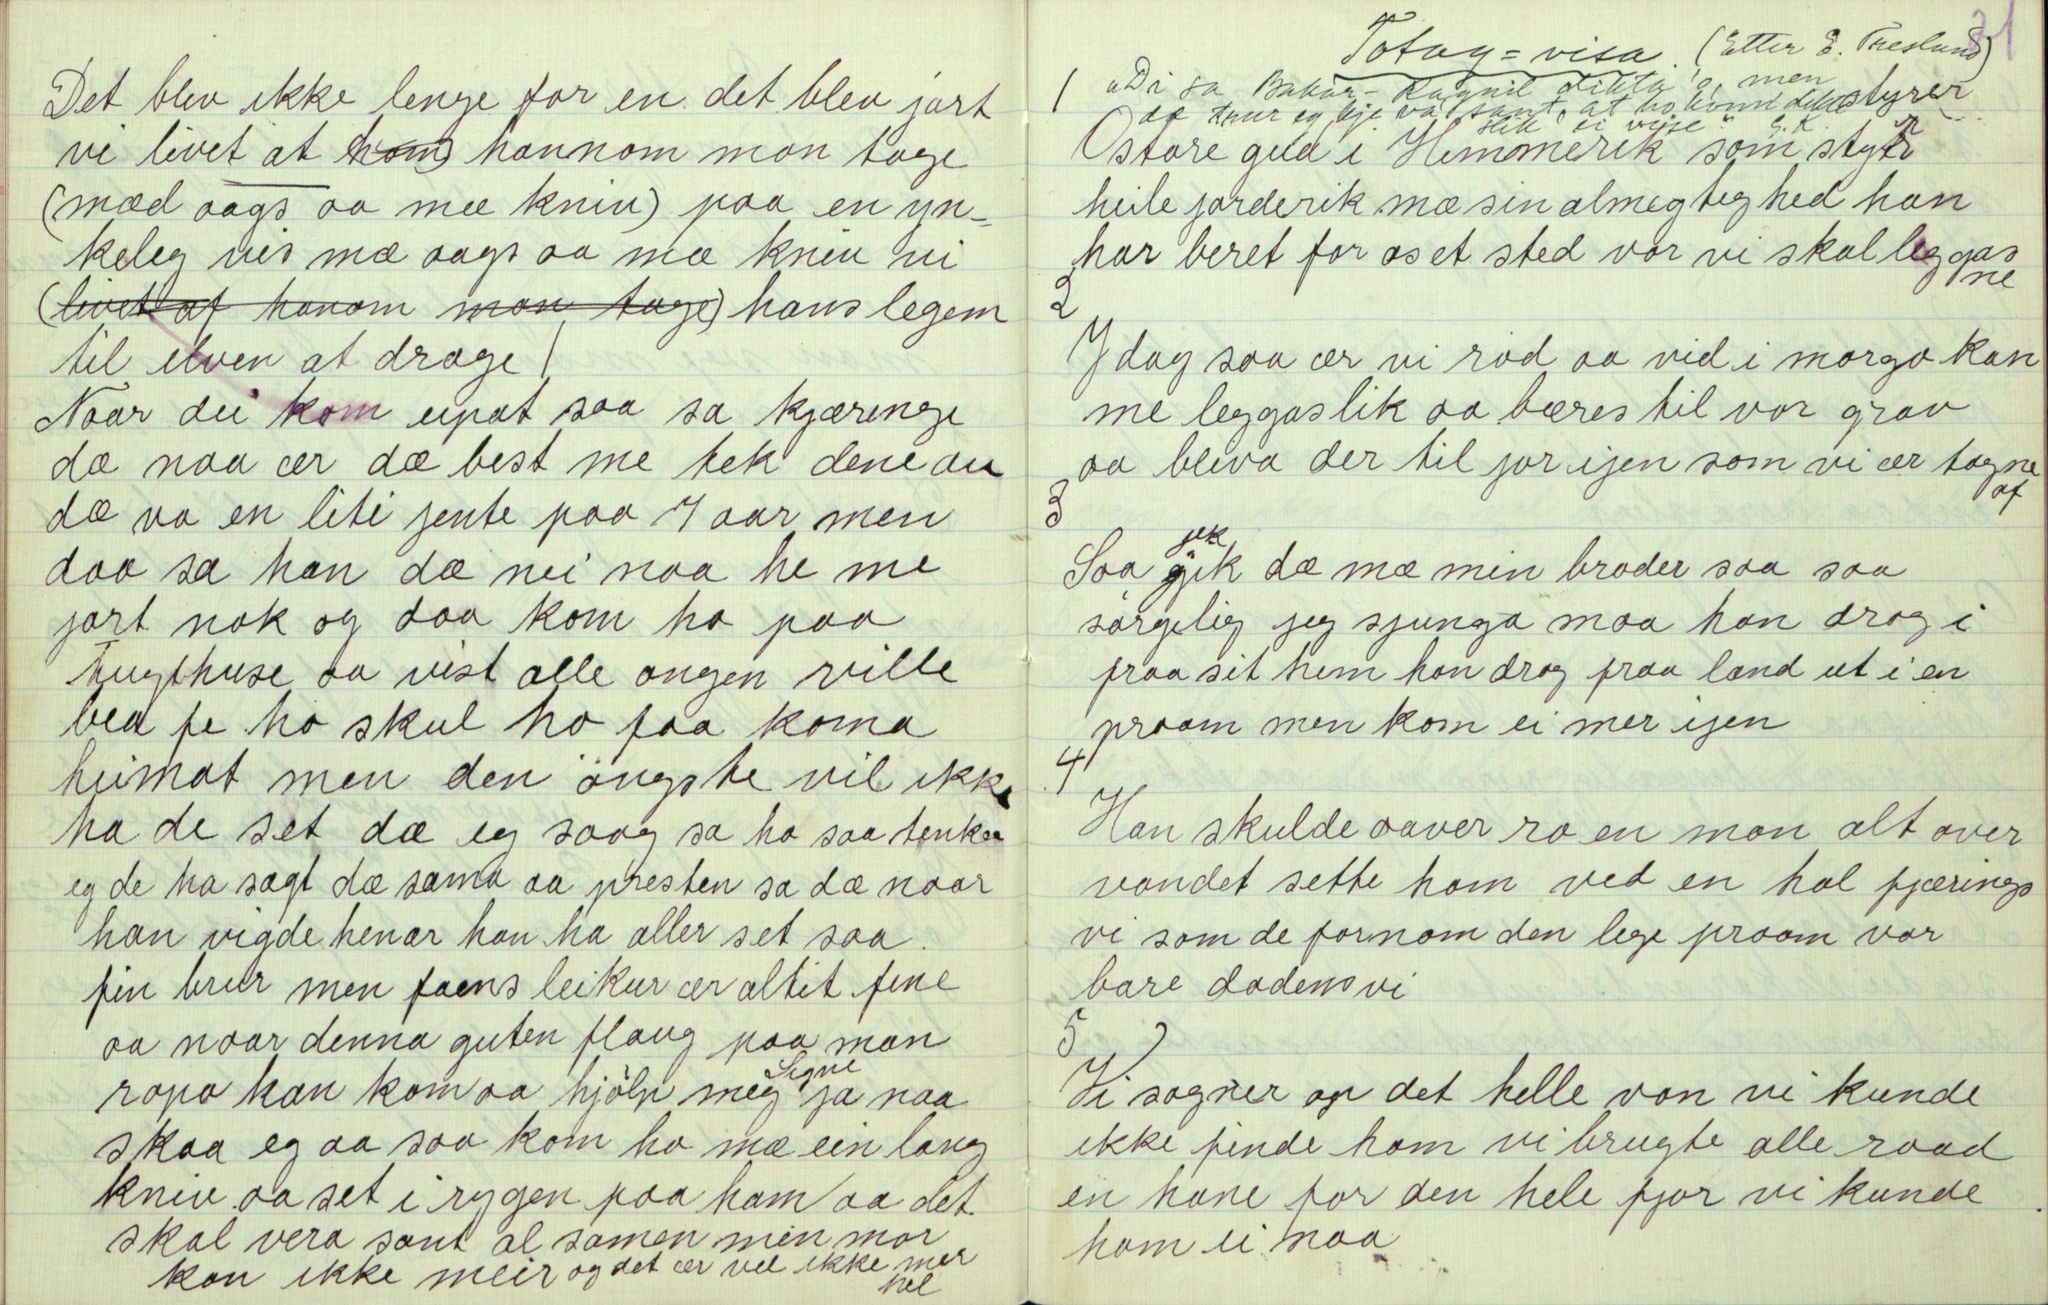 Det blev ikke lenge for en det blev jort
vi livet at hom hannom mon tage
(mæd oags oa me kniv) paa en yn-
keleg vis mæ oags oa mæ kniv vi
(livet af hanom mon tage) hans legem
til elven at drage /
Naar dei kom eipat saa sa kjæringe
dæ naa ær dæ best me tek dene au
dæ va en liti jente paa 7 aar men
daa sa han dæ nei naa he me
jort nok og daa kom ho paa
tugthuse oa vist alle ongen ville
bea fe ho skul ho faa koma
heimat men den öngste vil ikke
ha de set dæ eg saag sa ho saa tenker
eg de ha sagt dæ sama oa presten sa dæ naar
han vigde henar han ha aller set saa
fin brur men faens leikur ær altit fine
oa naar denna guten flaug paa man
ropa han kom oa hjölp meg Signe ja naa
skaa eg oa saa kom ho mæ ein lang
kniv oa set i rygen paa ham / oa det
skal vera sant al samen min mor
kan ikke meir og det ær vel ikke mer
hel
31
Totag=visa (Etter E. Treslund)
1 "Di sa Bakar-Ragnil dikta 'o, men
styrer
slik ei vise" E.K.
O store gud i Himmerik som styr
heile jorderik mæ sin almegteghed han
har beret for os et sted vor vi skal leggas
ne
2
I dag saa ær vi rod oa vid i morgo kan
me leggas lik oa bæres til vor grav
oa bleva der til jor ijen som vi ær tagne
af
3
jek
Saa gjik dæ mæ min broder saa saa
sörgelig jeg sjunga maa han drog i
fraa sit hem han drog fraa land ut i en
praam men kom ei mer ijen
4
Han skulde oaver ro en man alt over
vandet sette ham ved en hal fjærings
vi som de fornom den lege praam var
bare dodens vi
5
Vi sogner op det helle van vi kunde
ikke finde ham vi brugte alle raad
en hane for den hele fjor vi kunde
ham ei naa